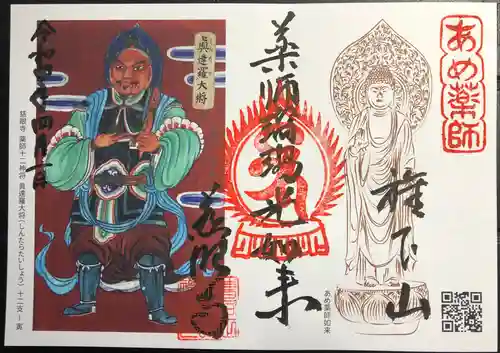 あめ薬師
薬師瑠璃光如来
権下山
あめ薬師如来
眞達羅大将
令和四年四月一日
慈眼寺
慈眼寺 薬師十二神将 眞達羅大将(しんたらたいしょう) 十二支−寅